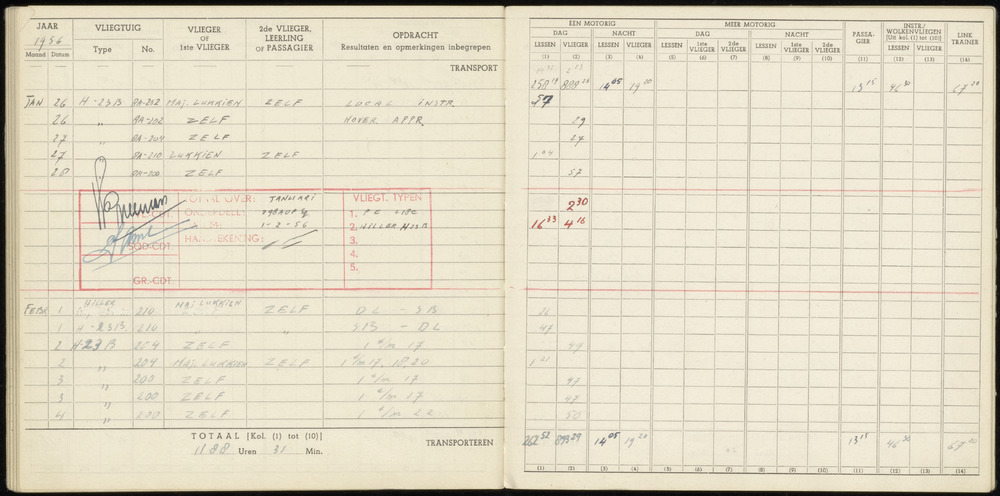 JAAR
1956
Maand Datum
VLIEGTUIG
Type No.
VLIEGER
OF
1ste VLIEGER
2de VLIEGER,
LEERLING
OF PASSAGIER
OPDRACHT
Resultaten en opmerkingen inbegrepen
TRANSPORT
JAN 26 H-23B RA-202 MAJ. LUKKIEN ZELF LOCAL INSTR
26 " RA-202 ZELF HOVER APPR.
27 " RA-204 ZELF
27 RA-210 LUKKIEN ZELF
28 RA-200 ZELF
TOTAAL OVER: JANUARI
ONDERDEEL: 298
1-2-56
HANDTEKENING:
SQD-CDT.
GR.-CDT.
VLIEGT. TYPEN
1. PC 18C
2. HILLER H23B
3.
4.
5.
FEBR 1 HILLER 210 MAJ LUKKIEN ZELF DL - SB
1 H-23B. 210 " " SB - DL
2 H-23B 204 ZELF 1 t/m 17
2 " 204 MAJ LUKKIEN ZELF 1 t/m 17, 18, 20
3 " 200 ZELF 1 t/m 17
3 " 200 ZELF 1 t/m 17
4 " 200 ZELF 1 t/m 22
TOTAAL [Kol. (1) tot (10)]
1188 Uren 31 Min.
TRANSPORTEREN
EEN MOTORIG
DAG NACHT
LESSEN VLIEGER LESSEN VLIEGER
(1) (2) (3) (4)
MEER MOTORIG
DAG NACHT
LESSEN 1ste VLIEGER 2de VLIEGER LESSEN 1ste VLIEGER 2de VLIEGER
(5) (6) (7) (8) (9) (10)
PASSA-
GIER
(11)
INSTR./
WOLKENVLIEGEN
[Uit kol. (1) tot (10)]
LESSEN VLIEGER
(12) (13)
LINK
TRAINER
(14)
14 05 19 20 13 15 46 30 67 20
57
29
27
1 04
57
2 30
16 33 4 16
47
49
1 21
47
47
50
262 52 893 29 14 05 19 20 13 15 46 30 67 20
(1) (2) (3) (4) (5) (6) (7) (8) (9) (10) (11) (12) (13) (14)